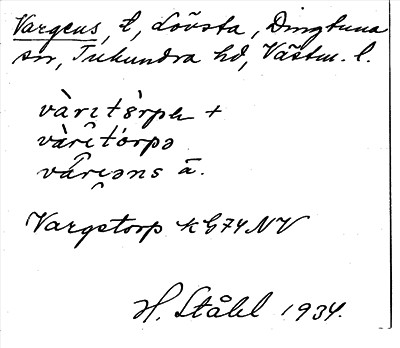 Vargens, t, Lövsta, Dingtuna
sn, Tuhundra hd, Västm. l.
vàrɪtòrpɐ +
vàrɪtórpə
vârɪəns ā.
Vargstorp kG74NV
H. Ståhl 1934.